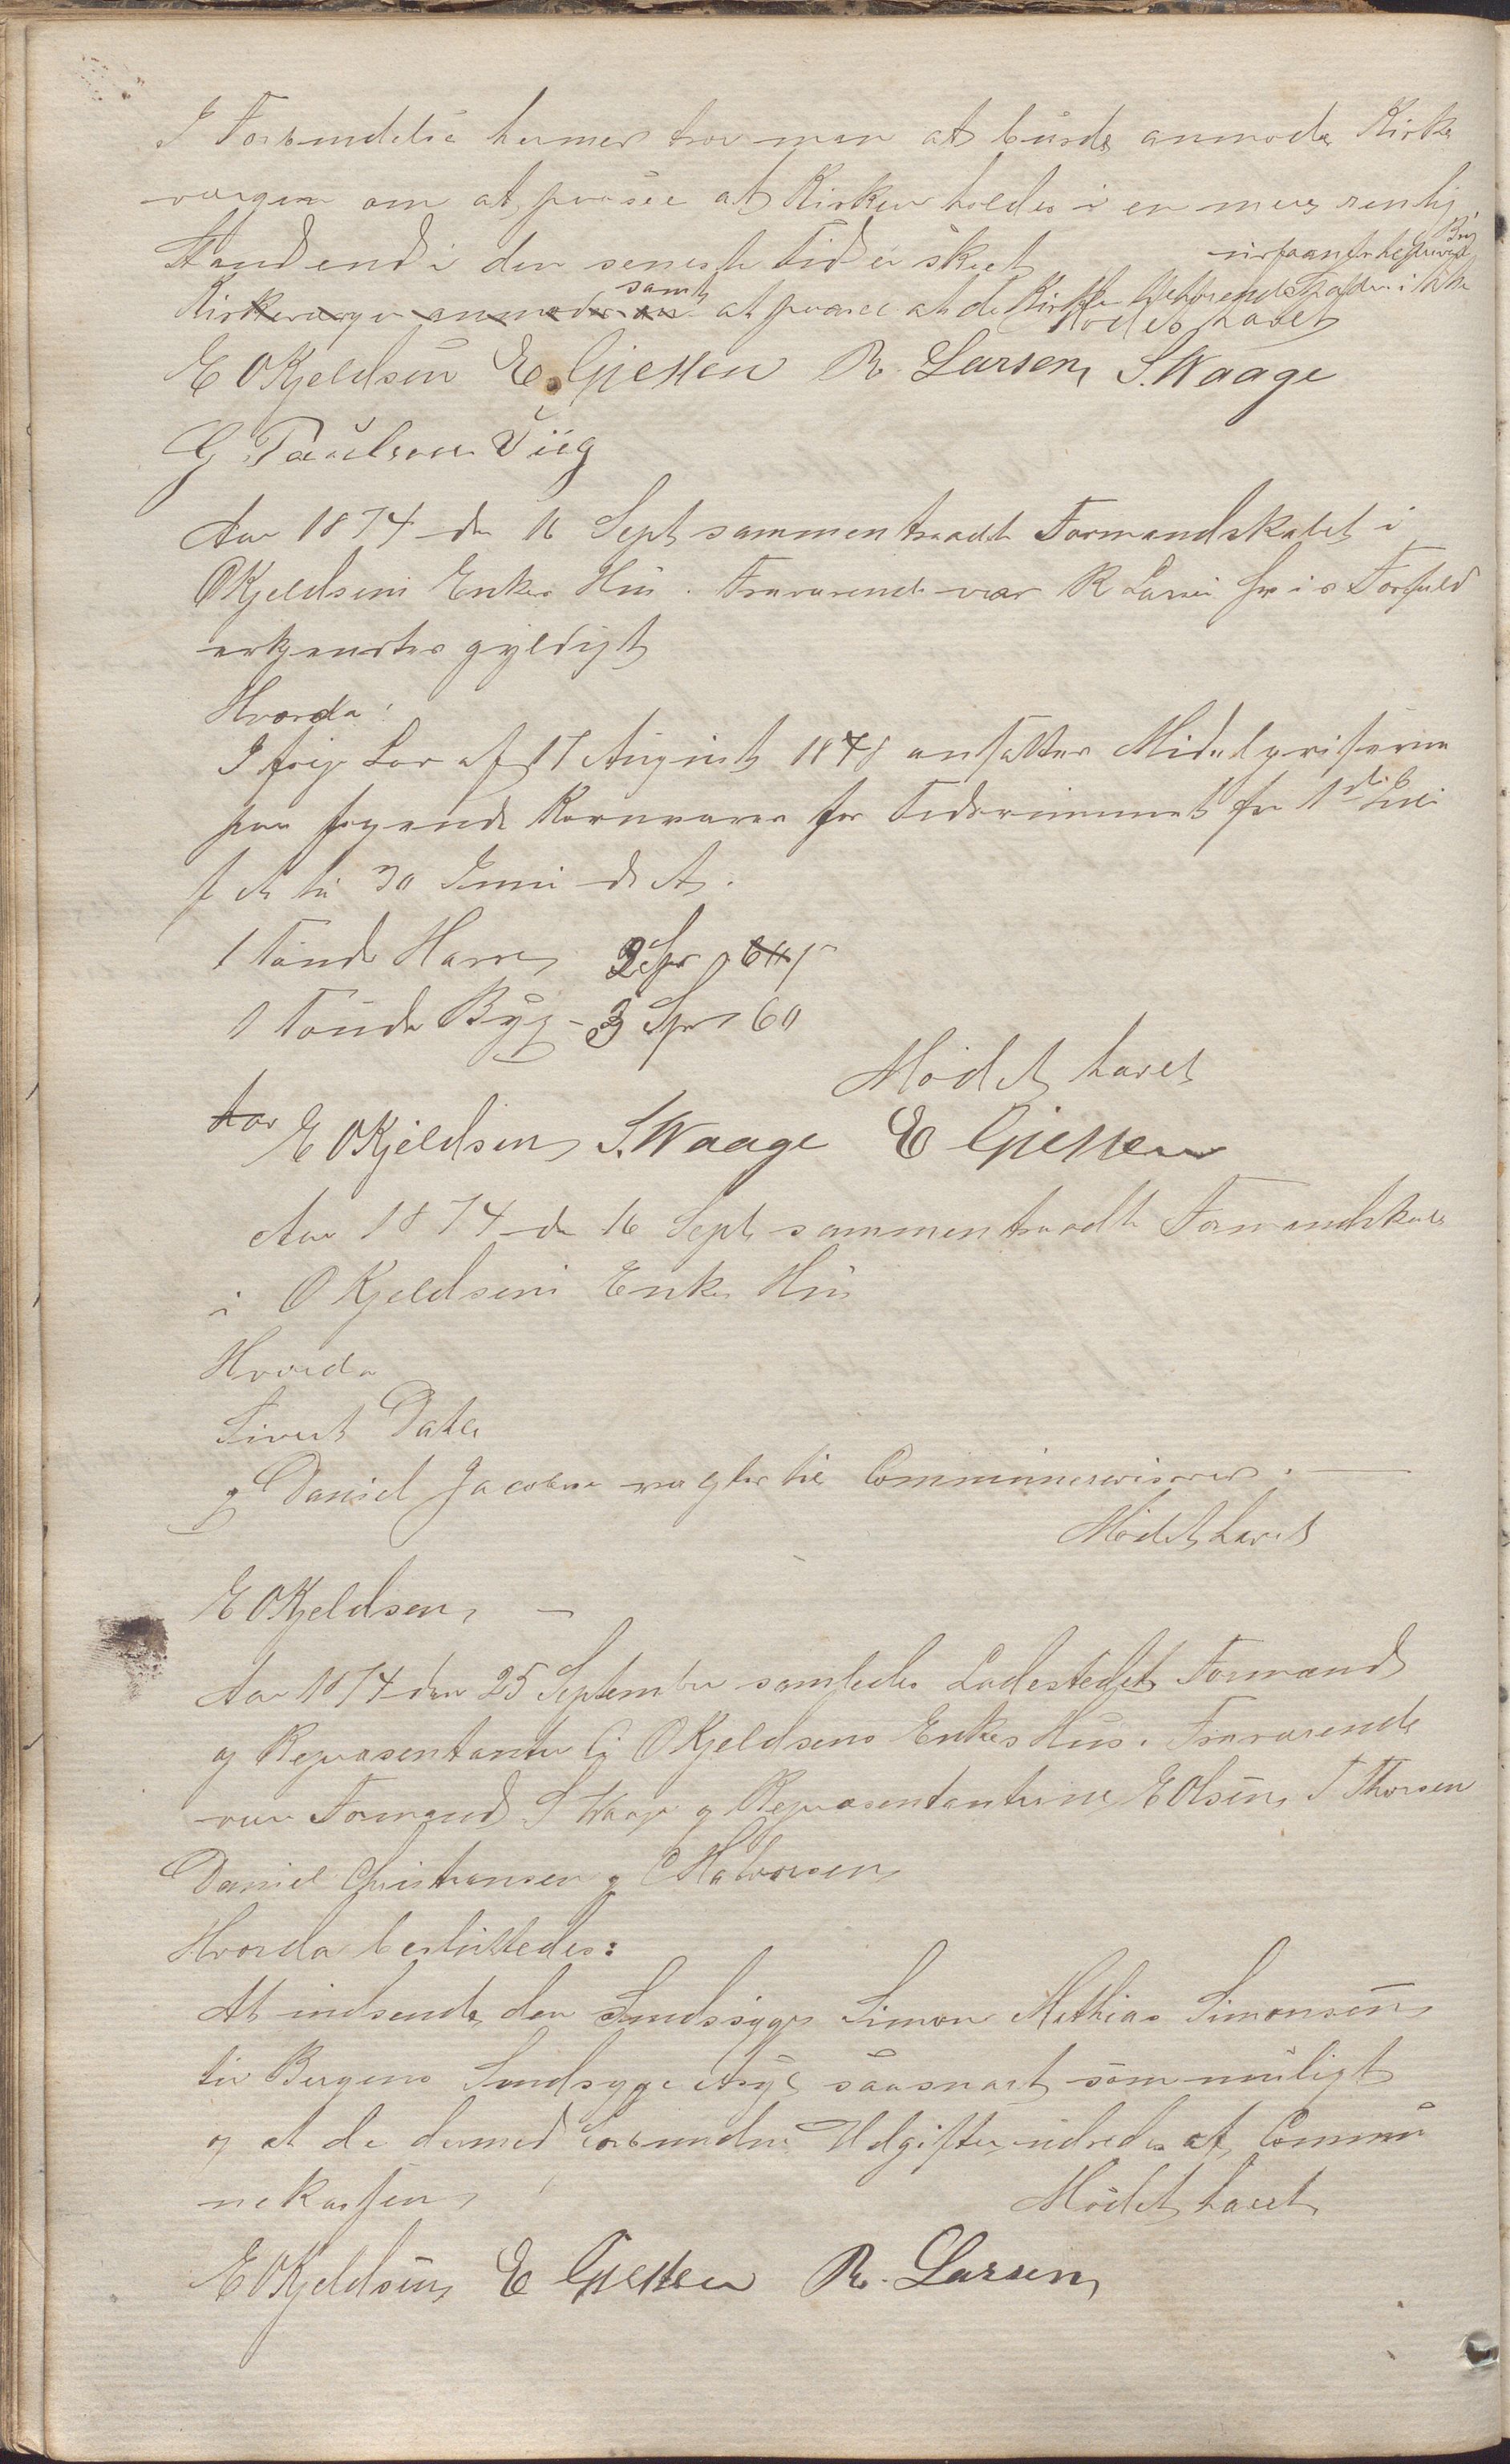 I Forbindelse hermed tror man at burde anmode Kirke
værgen om at paasee at Kirken holdes i en mere renlig
Stand end i den seneste Tid er skeet
Kirkeværgen anmodes om samt at paasee at de Kirken tilhørende
Mødet hævet
E OKjeldsen E. Gjessen R. Larsen S. Waage
G. Paulsen Viig
Aar 1874 den 16 Sept sammentraadte Formandskabet i
OKjeldsens Enkes Hus. Fraværende var R Larsen hvis Forfald
erkjendtes gyldigt
Hvorda:
Ifølge Lov af 17 August 1848 ansattes Middelpriserne
paa følgende Kornvarer for Tidsrummet fra 1ste Juli
f A til 30 Juni d A.
1 Tønde Havre 2 Spd
1 Tønde Byg - 3 Spd 60
Mødet hævet
Aar
E OKjeldsen S. Waage E Gjessen
Aar 1874 den 16 Sept sammentraadte Formandskabet
i OKjeldsens Enkes Hus
Hvorda
Sivert Dahle
og Daniel Jacobsen valgtes til Communerevisorer.
Mødet hævet
E OKjeldsen
Aar 1874 den 25 September samledes Ladestedets Formænd
og Repræsentanter i OKjeldsens Enkes Hus. Fraværende
var Formand S Waage og Repræsentanterne E Olsen, T Thorsen
Daniel Christiansen og C Halvorsen
Hvorda besluttedes:
At indsende den Sindssyge Simon Mathias Simonsen
til Bergens Sindsyge Asyl saasnart som muligt
og at de dermed forbundne Udgifter udredes af Commu
nekassen
Mødet hævet
E OKjeldsen E Gjessen R. Larsen